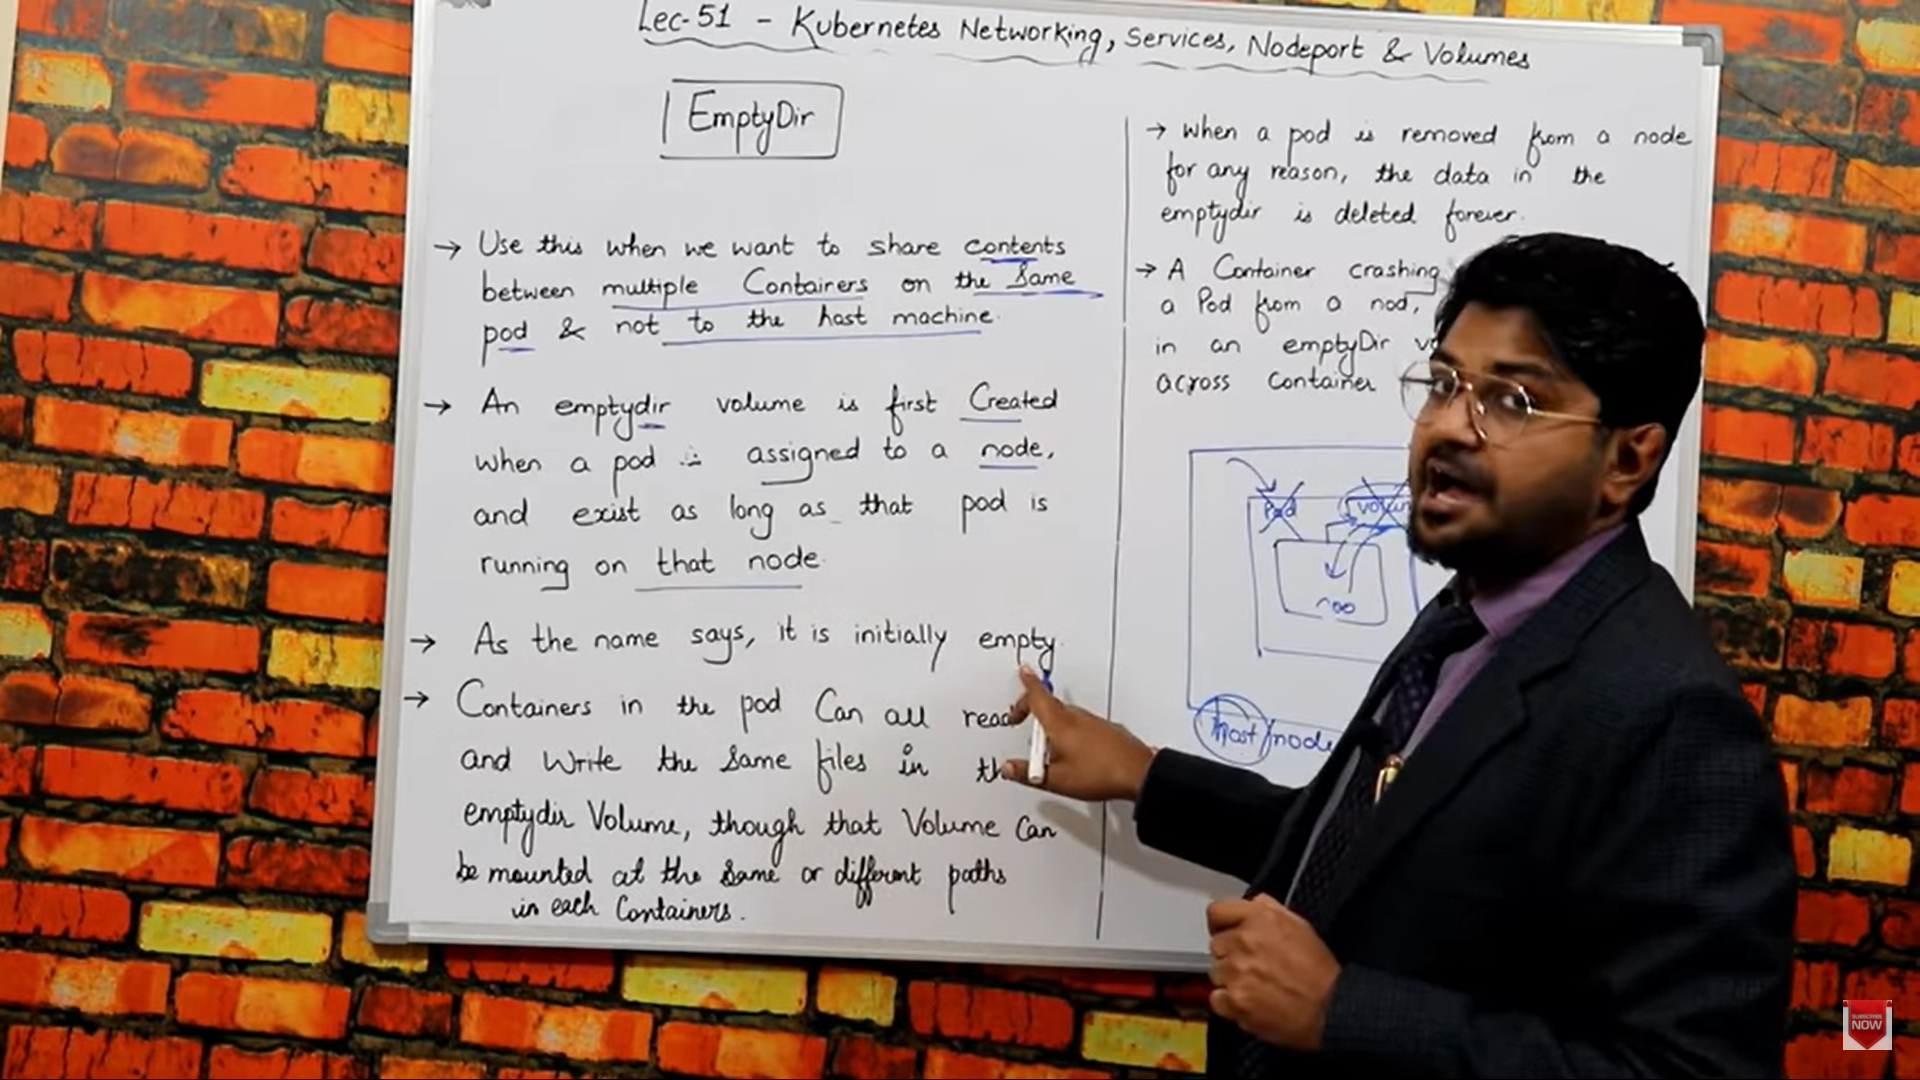 Lec-51 - Kubernetes Networking, Services, Nodeport & Volumes
EmptyDir
→ Use this when we want to share contents
between multiple Containers on the Same
pod & not to the host machine.
→ An emptydir volume is first Created
when a pod is assigned to a node,
and exist as long as that pod is
running on that node.
→ As the name says, it is initially empty.
→ Containers in the pod Can all read
and Write the Same files in
emptydir Volume, though that Volume Can
be mounted at the Same or different paths
in each Containers.
→ when a pod is removed from a node
for any reason, the data in the
emptydir is deleted forever.
→ A Container crashing
a Pod from a nod,
in an emptyDir
across Container
Pod
Host/node
SUBSCRIBE
NOW